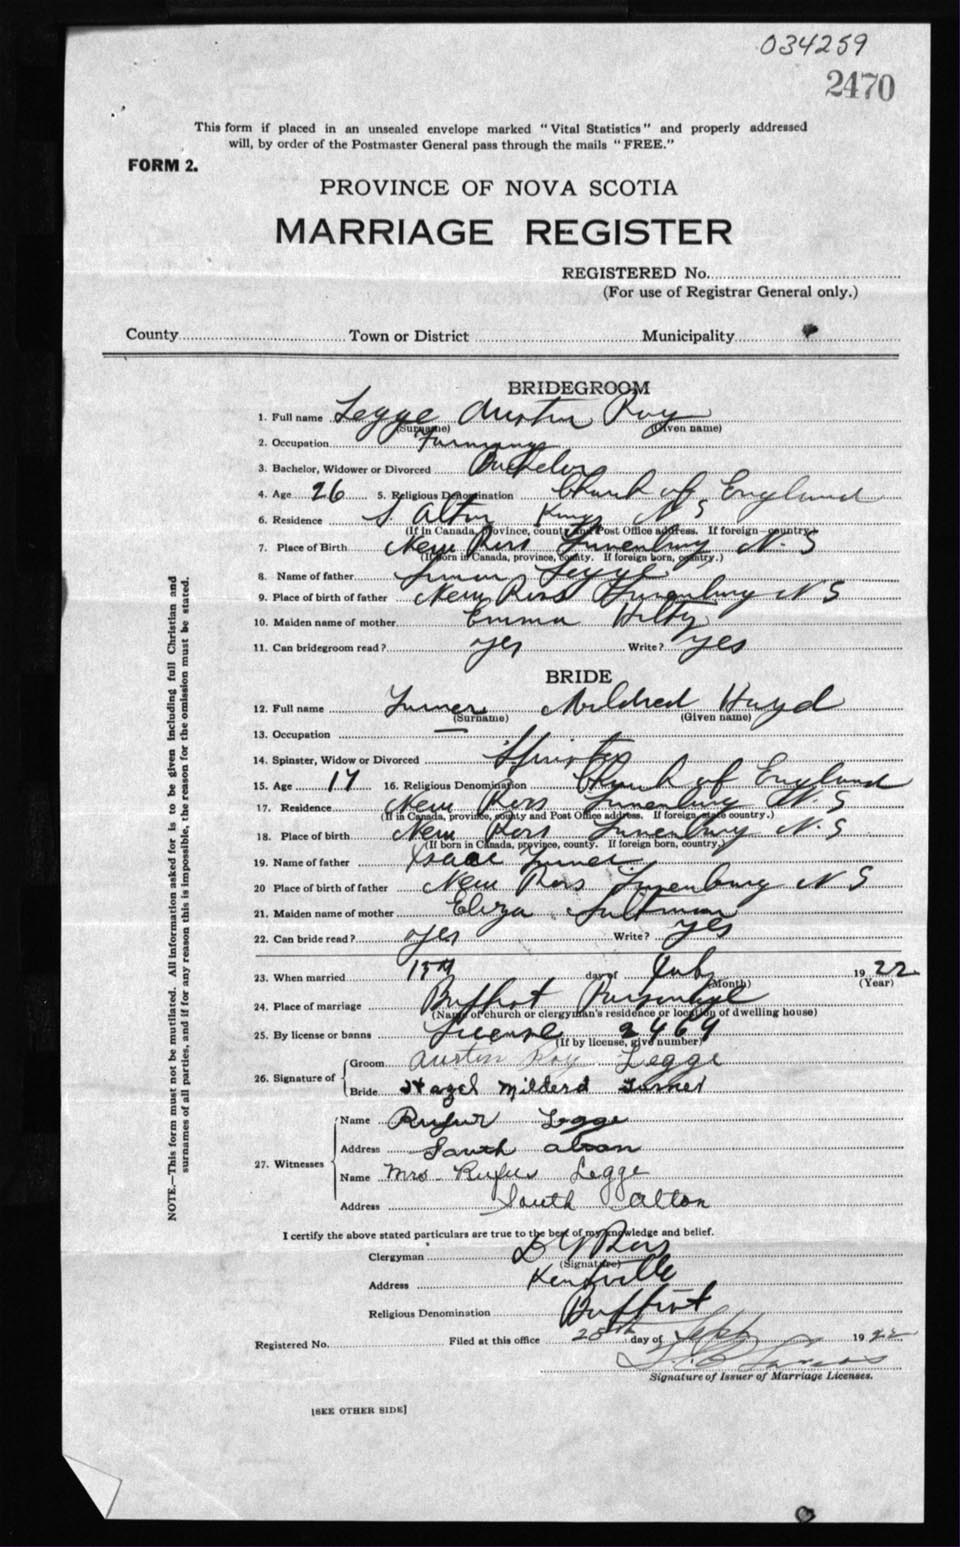 034259
2470
This form if placed in an unsealed envelope marked "Vital Statistics" and properly addressed
will, by order of the Postmaster General pass through the mails "FREE."
FORM 2.
PROVINCE OF NOVA SCOTIA
MARRIAGE REGISTER
REGISTERED No.
(For use of Registrar General only.)
County Town or District Municipality
BRIDEGROOM
1. Full name Legge Austin Roy
(Surname) (Given name)
2. Occupation Farming
3. Bachelor, Widower or Divorced Bachelor
4. Age 26 5. Religious Denomination Church of England
6. Residence S Alton Kings N S
(If in Canada, province, county and Post Office address. If foreign—country.)
7. Place of Birth New Ross Lunenburg N. S
(If born in Canada, province, county. If foreign born, country.)
8. Name of father Legge
9. Place of birth of father New Ross Lunenburg N S
10. Maiden name of mother Emma Hilty
11. Can bridegroom read? yes Write? yes
BRIDE
12. Full name Turner Mildred Hazel
(Surname) (Given name)
13. Occupation —
14. Spinster, Widow or Divorced Spinster
15. Age 17 16. Religious Denomination Church of England
17. Residence New Ross Lunenburg N. S
(If in Canada, province, county and Post Office address. If foreign state country.)
18. Place of birth New Ross Lunenburg N. S
(If born in Canada, province, county. If foreign born, country.)
19. Name of father Isaac Turner
20 Place of birth of father New Ross Lunenburg N S
21. Maiden name of mother Eliza
22. Can bride read? yes Write? yes
23. When married day of 1922
(Month) (Year)
24. Place of marriage Baptist Parsonage
(Name of church or clergyman's residence or location of dwelling house)
25. By license or banns License 2469
(If by license, give number)
26. Signature of
Groom Austin Roy Legge
Bride Hazel Milderd Turner
27. Witnesses
Name Rufus Legge
Address South Alton
Name Mrs Rufus Legge
Address South Alton
I certify the above stated particulars are true to the best of my knowledge and belief.
Clergyman Ross
(Signature)
Address Kentville
Religious Denomination Baptist
Registered No. Filed at this office 28th day of Sept 1922
Signature of Issuer of Marriage Licenses.
[SEE OTHER SIDE]
NOTE.—This form must not be mutilated. All information asked for is to be given including full Christian and
surnames of all parties, and if for any reason this is impossible, the reason for the omission must be stated.